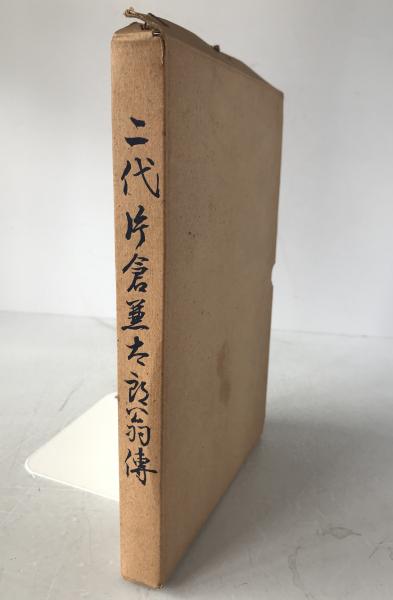 二代片倉兼太郎翁傳